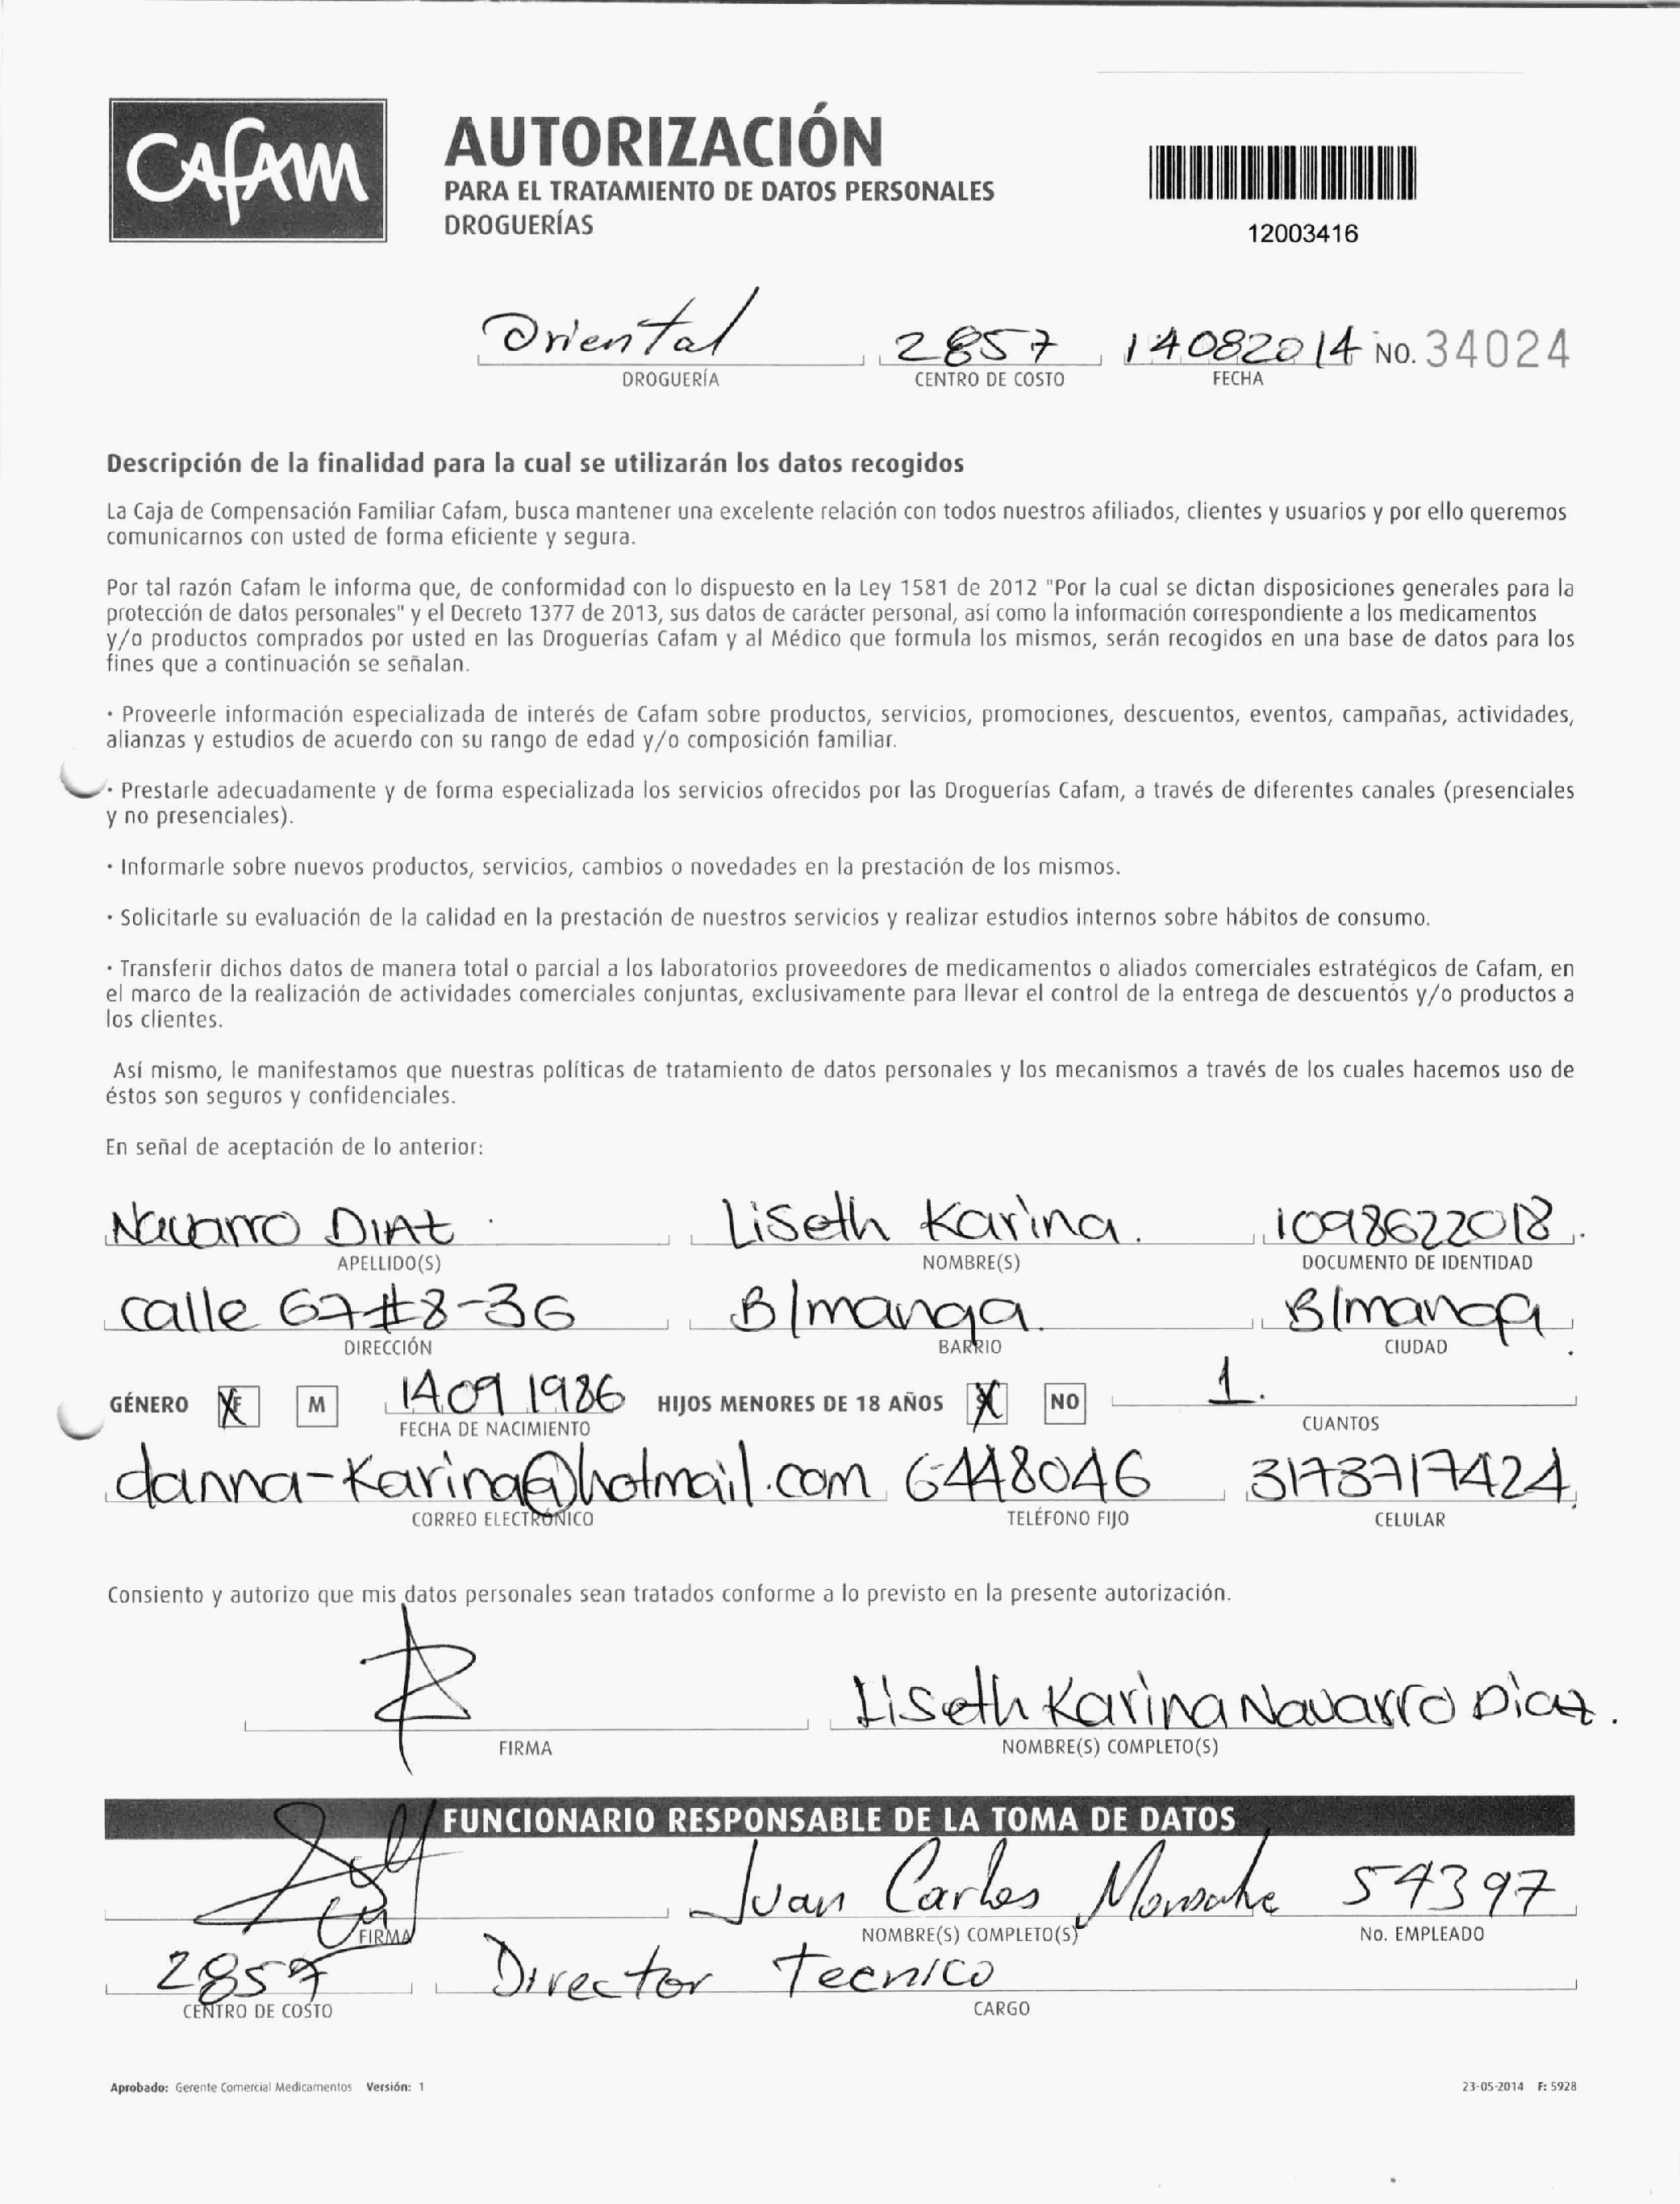 CAFAM
AUTORIZACIÓN
PARA EL TRATAMIENTO DE DATOS PERSONALES
DROGUERÍAS
12003416
Oriental 2857 14082014 No. 34024
DROGUERÍA CENTRO DE COSTO FECHA
Descripción de la finalidad para la cual se utilizarán los datos recogidos
La Caja de Compensación Familiar Cafam, busca mantener una excelente relación con todos nuestros afiliados, clientes y usuarios y por ello queremos
comunicarnos con usted de forma eficiente y segura.
Por tal razón Cafam le informa que, de conformidad con lo dispuesto en la Ley 1581 de 2012 "Por la cual se dictan disposiciones generales para la
protección de datos personales" y el Decreto 1377 de 2013, sus datos de carácter personal, así como la información correspondiente a los medicamentos
y/o productos comprados por usted en las Droguerías Cafam y al Médico que formula los mismos, serán recogidos en una base de datos para los
fines que a continuación se señalan.
· Proveerle información especializada de interés de Cafam sobre productos, servicios, promociones, descuentos, eventos, campañas, actividades,
alianzas y estudios de acuerdo con su rango de edad y/o composición familiar.
· Prestarle adecuadamente y de forma especializada los servicios ofrecidos por las Droguerías Cafam, a través de diferentes canales (presenciales
y no presenciales).
· Informarle sobre nuevos productos, servicios, cambios o novedades en la prestación de los mismos.
· Solicitarle su evaluación de la calidad en la prestación de nuestros servicios y realizar estudios internos sobre hábitos de consumo.
· Transferir dichos datos de manera total o parcial a los laboratorios proveedores de medicamentos o aliados comerciales estratégicos de Cafam, en
el marco de la realización de actividades comerciales conjuntas, exclusivamente para llevar el control de la entrega de descuentos y/o productos a
los clientes.
Así mismo, le manifestamos que nuestras políticas de tratamiento de datos personales y los mecanismos a través de los cuales hacemos uso de
éstos son seguros y confidenciales.
En señal de aceptación de lo anterior:
Navarro Diaz Liseth Karina. 1098622018.
APELLIDO(S) NOMBRE(S) DOCUMENTO DE IDENTIDAD
calle 67#8-36 B/manga B/manga
DIRECCIÓN BARRIO CIUDAD
GÉNERO F M 14091986 HIJOS MENORES DE 18 AÑOS SI NO 1.
FECHA DE NACIMIENTO CUANTOS
danna-Karina@hotmail.com 6448046 3173717424
CORREO ELECTRÓNICO TELÉFONO FIJO CELULAR
Consiento y autorizo que mis datos personales sean tratados conforme a lo previsto en la presente autorización.
Liseth Karina Navarro Diaz.
FIRMA NOMBRE(S) COMPLETO(S)
FUNCIONARIO RESPONSABLE DE LA TOMA DE DATOS
Juan Carlos 54397
FIRMA NOMBRE(S) COMPLETO(S) No. EMPLEADO
2857 Director Tecnico
CENTRO DE COSTO CARGO
Aprobado: Gerente Comercial Medicamentos Versión: 1 23-05-2014 F: 5928